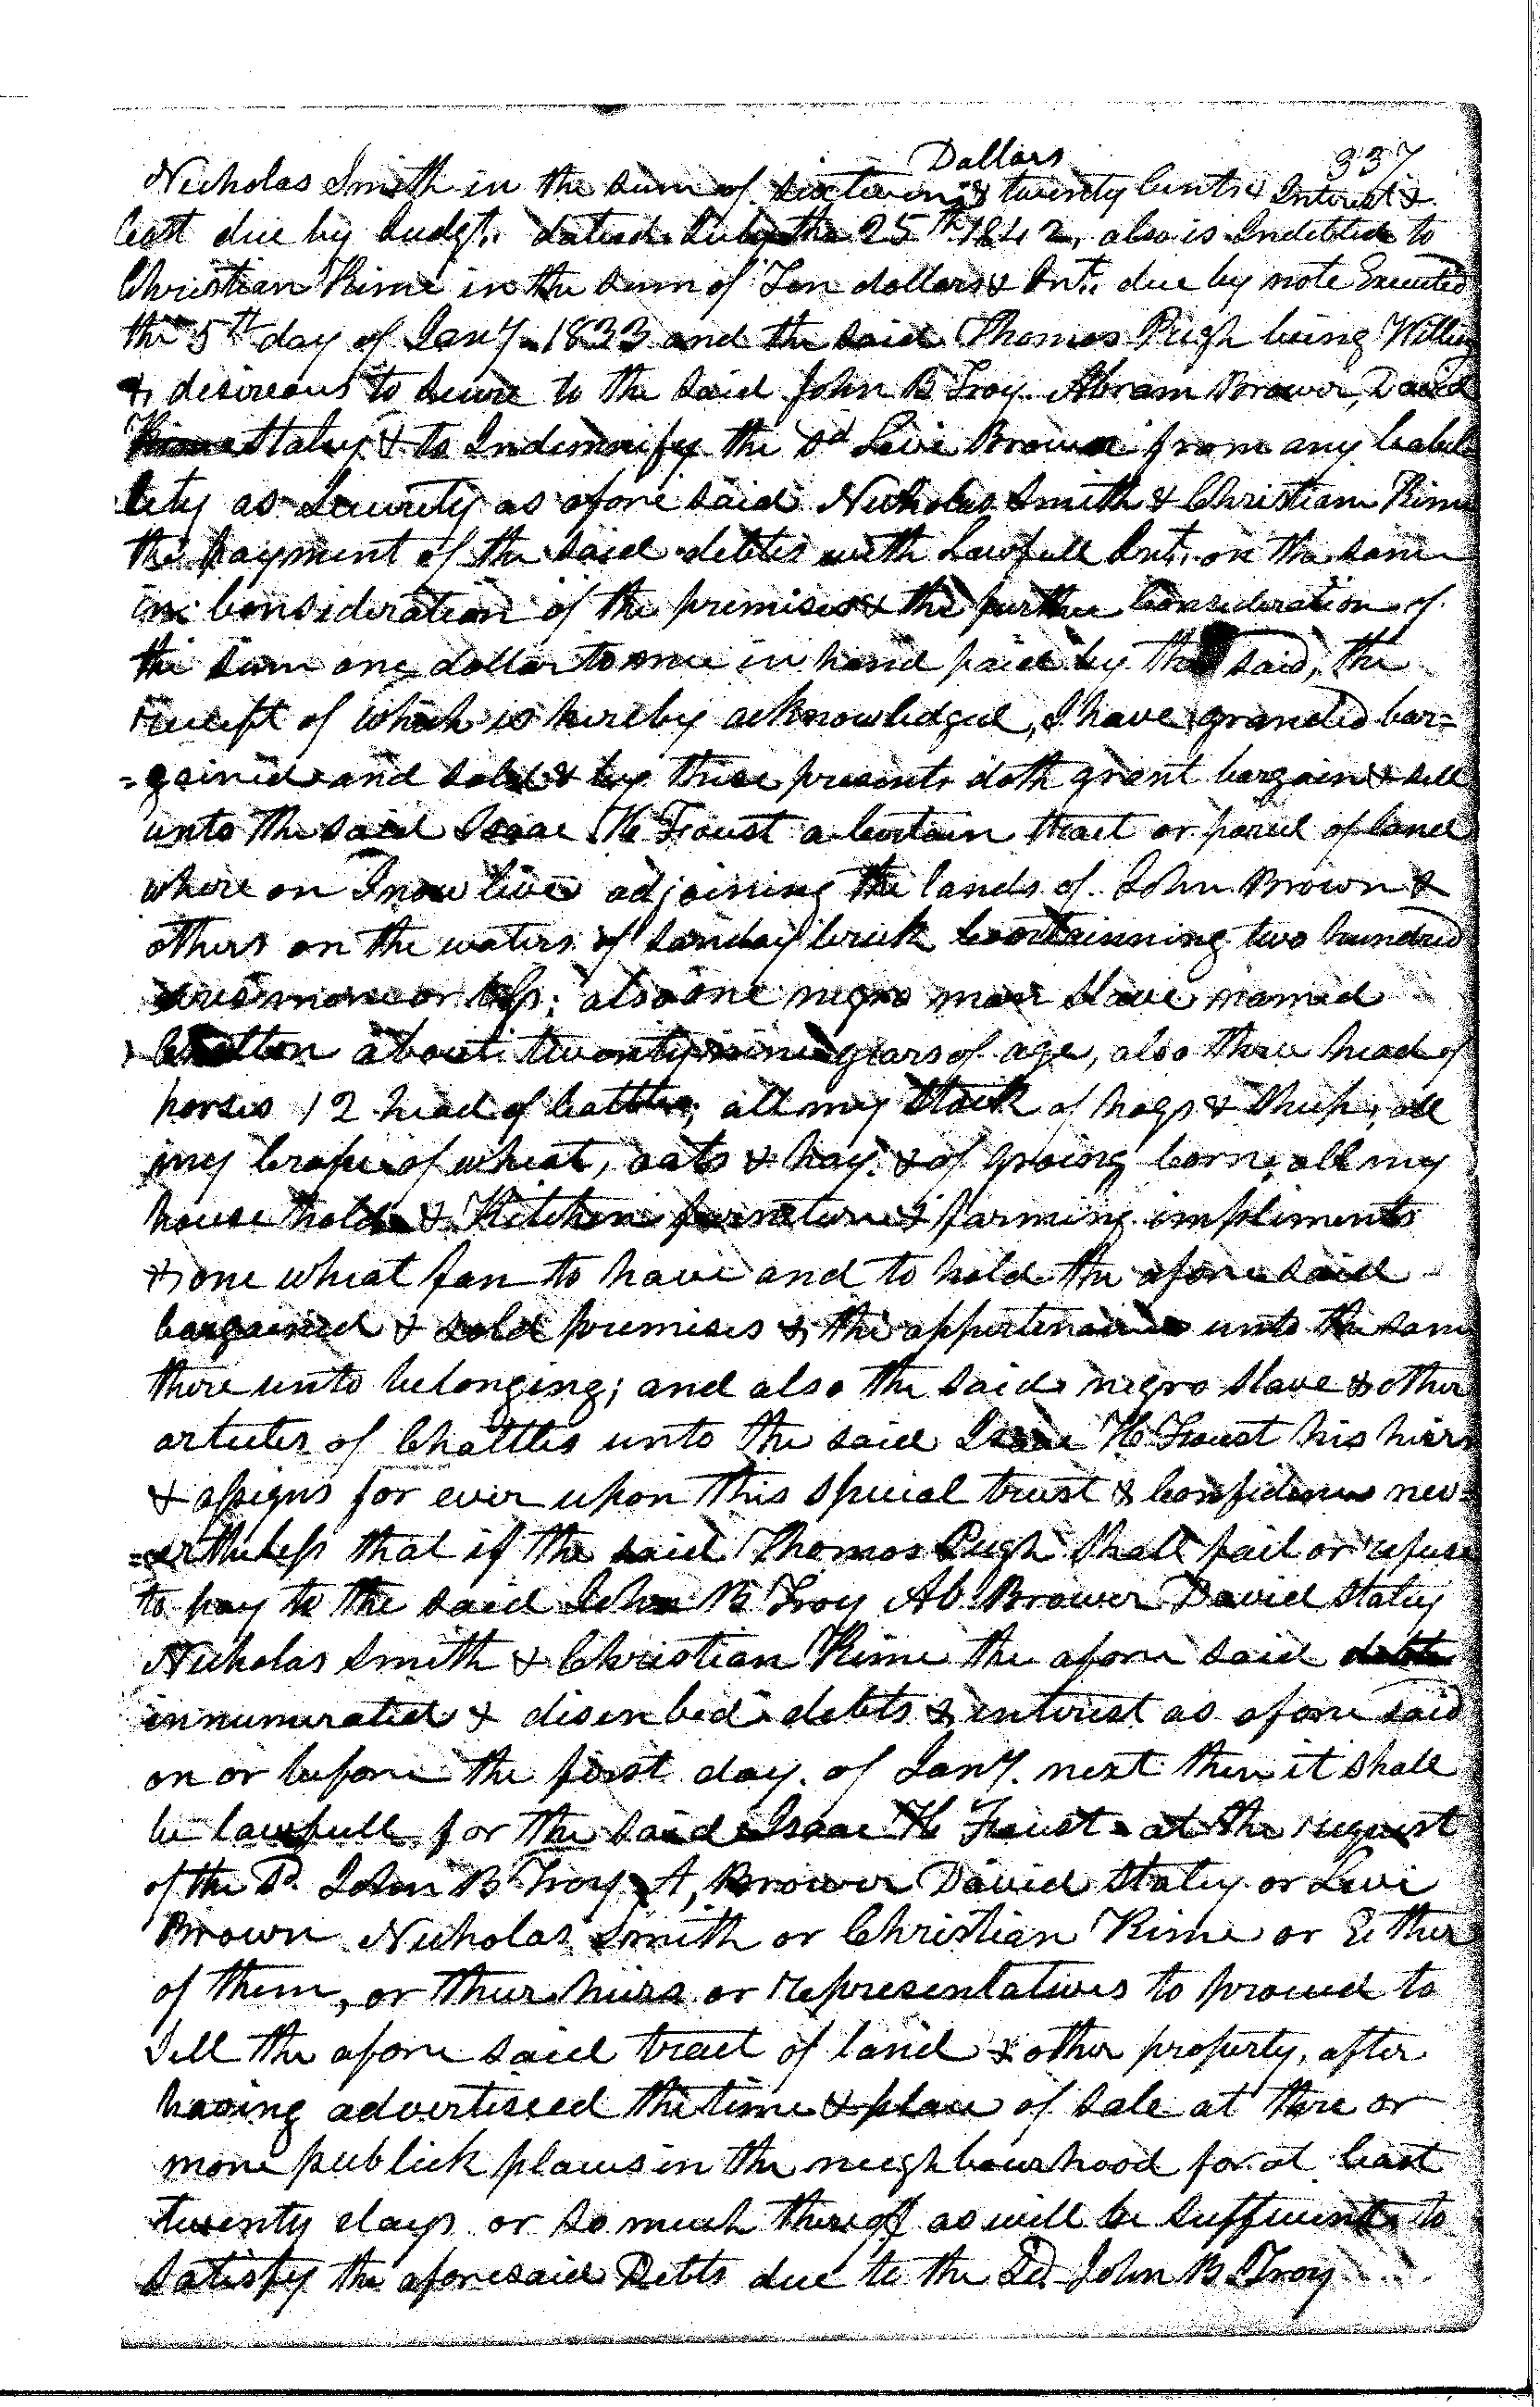 337
Dollars
Nicholas Smith in the sum of sixteen & twenty Cents & Interest &
Cost due by Judgt. dated July the 25th 1842, also is Indebted to
Christian Kime in the sum of Ten dollars & Int. due by note Executed
the 5th day of Jany. 1833 and the said Thomas Pugh being Willing
& desireous to secure to the said John B Troy Abram Brower, David
Staley & to Indemnify the sd Levi Brown from any liabil
lity as Security as afore said Nicholas Smith & Christian Kime
the payment of the said debts with Lawfull Int. on the same
in Consideration of the premises & the further Consideration of
the sum one dollar to me in hand paid by the said, the
receipt of which is hereby acknowledged, I have granted bar=
=gained and sold & by these presents doth grant bargain & sell
unto the said Isaac H Foust a Certain tract or parcel of land
where on I now live adjoining the lands of John Brown &
others on the waters of Sanday Creek Containning two hundred
acres more or less; also one negro man slave named
about twenty nine years of age, also three head of
horses 12 head of Cattle, all my stock of hogs & sheep, all
my Crope of wheat, oats & hay & of groing Corn, all my
house hold & Kitchen furneture & farming impliments
& one wheat fan to have and to hold the afore said
bargained & sold premises & the appertenances unto the same
there unto belonging; and also the said negro slave & other
articles of Chattles unto the said Isaac H Foust his heirs
& assigns for ever upon this special trust & Confidence nev=
=ertheless that if the said Thomas Pugh shall fail or refuse
to pay to the said John B Troy Ab. Brower David Staley
Nicholas Smith & Christian Kime the afore said debts
innumerated & discribed debts & interest as afore said
on or before the first day of Jany. next then it shall
be lawfull for the said Isaac H Foust at the request
of the Sd. John B Troy A, Brower David Staley or Levi
Brown Nicholas Smith or Christian Kime or Either
of them, or their heirs or representatives to proceed to
sell the afore said tract of land & other property, after
having advertiseed the time & place of sale at three or
more publick places in the neighbourhood for at least
twenty days or so much thereof as will be sufficient to
satisfy the aforesaid Debts due to the Sd. John B Troy